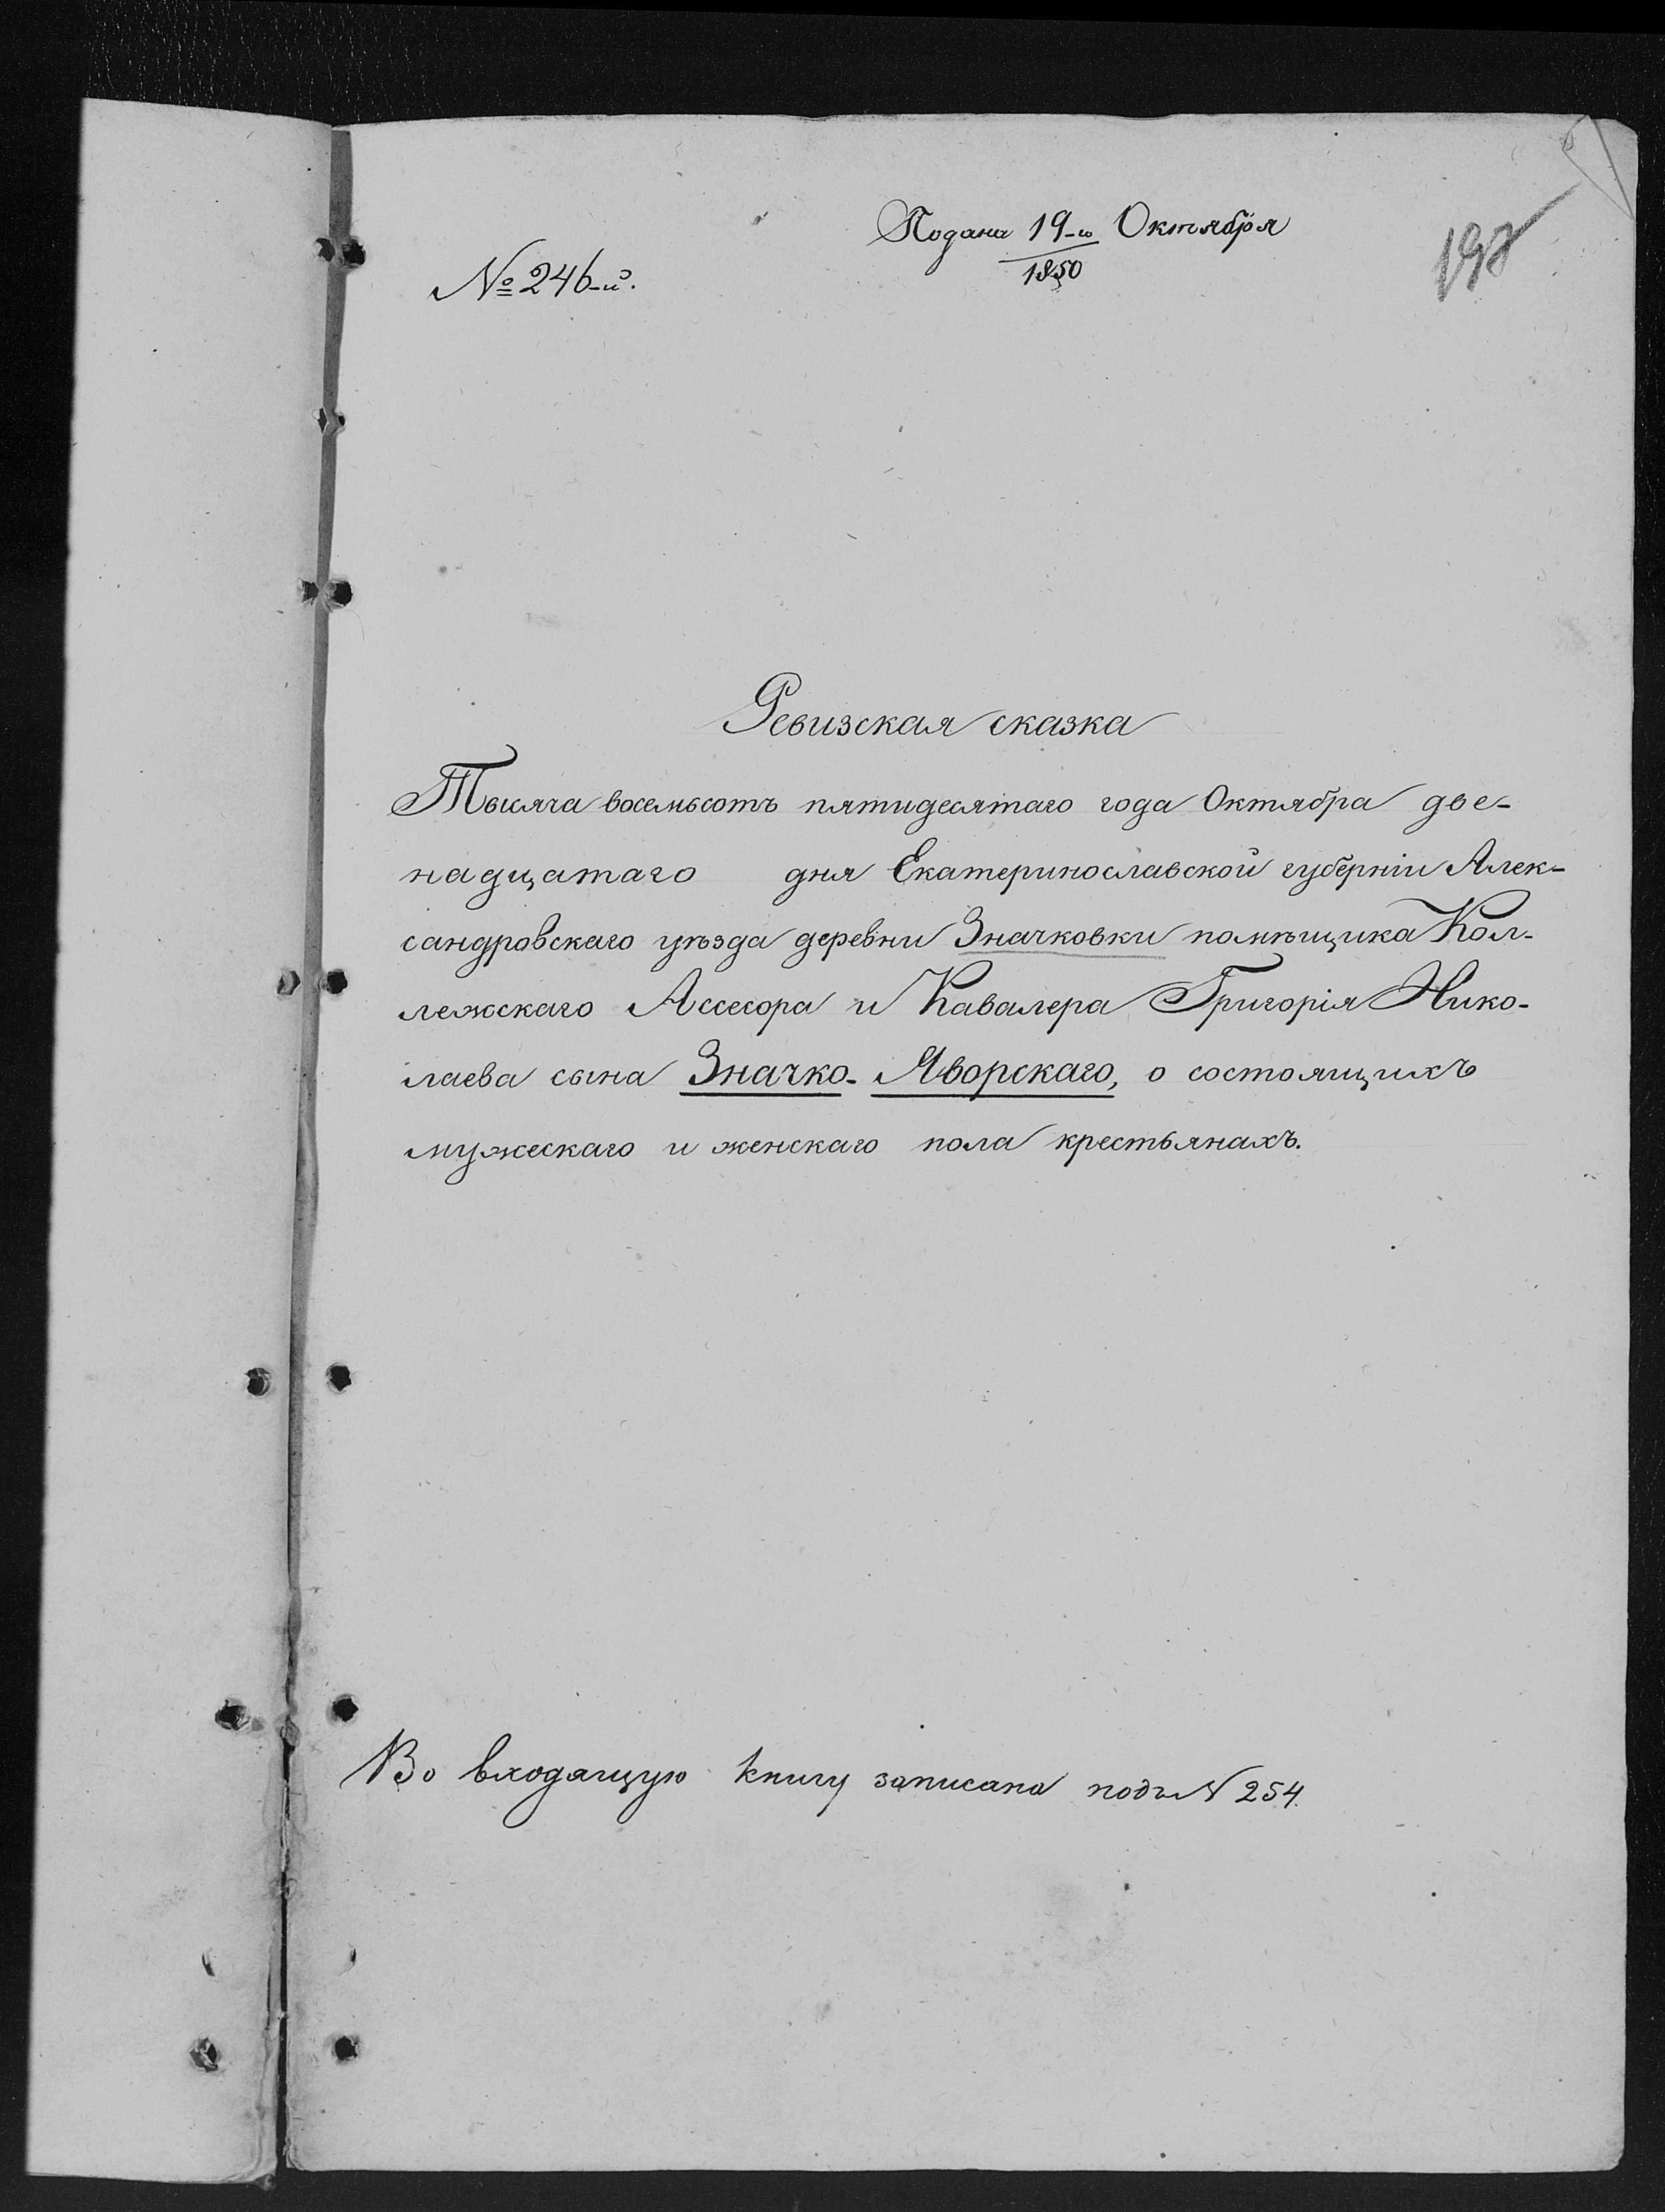 Подана 19-го Октября
1850
№ 246-й.
Ревизская сказка
Тысяча восемьсотъ пятидесятаго года Октября две-
надцатаго дня Екатеринославской губерніи Алек-
сандровскаго уѣзда деревни Значковки помѣщика Кол-
лежскаго Ассесора и Кавалера Григорія Нико-
лаева сына Значко-Яворскаго, о состоящихъ
мужескаго и женскаго пола крестьянахъ.
Во входящую книгу записана подъ N 254.